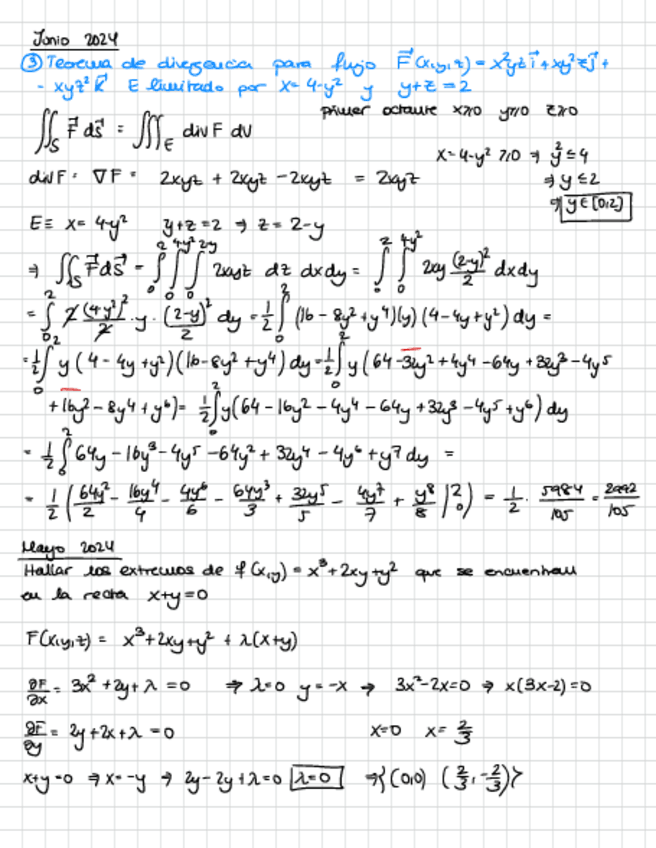 Junio 2024
③ Teorema de divergencia para flujo F⃗(x,y,z) = x²yz i⃗ + xy²z j⃗ +
- xyz² k⃗ E limitado por x = 4-y² y y+z = 2
primer octante x≥0 y≥0 z≥0
∬_S F⃗ dS⃗ = ∭_E div F dV
x = 4-y² ≥0 ⇒ y² ≤ 4
div F = ∇F = 2xyz + 2xyz - 2xyz = 2xyz ⇒ y ≤ 2
⇒ y ∈ [0,2]
E ≡ x = 4-y² y+z = 2 ⇒ z = 2-y
⇒ ∬_S F⃗ dS⃗ = ∫₀² ∫₀^(4-y²) ∫₀^(2-y) 2xyz dz dx dy = ∫₀² ∫₀^(4-y²) 2xy (2-y)²/2 dx dy
= ∫₀² 2 (4-y²)²/2 · y · (2-y)²/2 dy = 1/2 ∫₀² (16 - 8y² + y⁴)(y)(4 - 4y + y²) dy =
= 1/2 ∫₀² y (4 - 4y + y²)(16 - 8y² + y⁴) dy = 1/2 ∫₀² y (64 - 32y² + 4y⁴ - 64y + 32y³ - 4y⁵
+ 16y² - 8y⁴ + y⁶) = 1/2 ∫₀² y (64 - 16y² - 4y⁴ - 64y + 32y³ - 4y⁵ + y⁶) dy
= 1/2 ∫₀² 64y - 16y³ - 4y⁵ - 64y² + 32y⁴ - 4y⁶ + y⁷ dy =
= 1/2 ( 64y²/2 - 16y⁴/4 - 4y⁶/6 - 64y³/3 + 32y⁵/5 - 4y⁷/7 + y⁸/8 |₀² ) = 1/2 · 5984/105 = 2992/105
Mayo 2024
Hallar los extremos de f(x,y) = x³ + 2xy + y² que se encuentran
en la recta x+y=0
F(x,y,z) = x³ + 2xy + y² + λ(x+y)
∂F/∂x = 3x² + 2y + λ = 0 ⇒ λ=0 y = -x → 3x² - 2x = 0 → x(3x-2) = 0
∂F/∂y = 2y + 2x + λ = 0 x=0 x = 2/3
x+y = 0 ⇒ x = -y → 2y - 2y + λ = 0 λ=0 ⇒ {(0,0) (2/3, -2/3)}